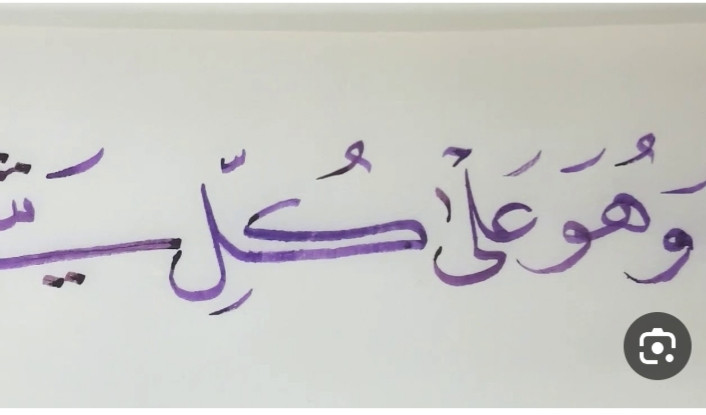 وَهُوَ عَلَىٰ كُلِّ